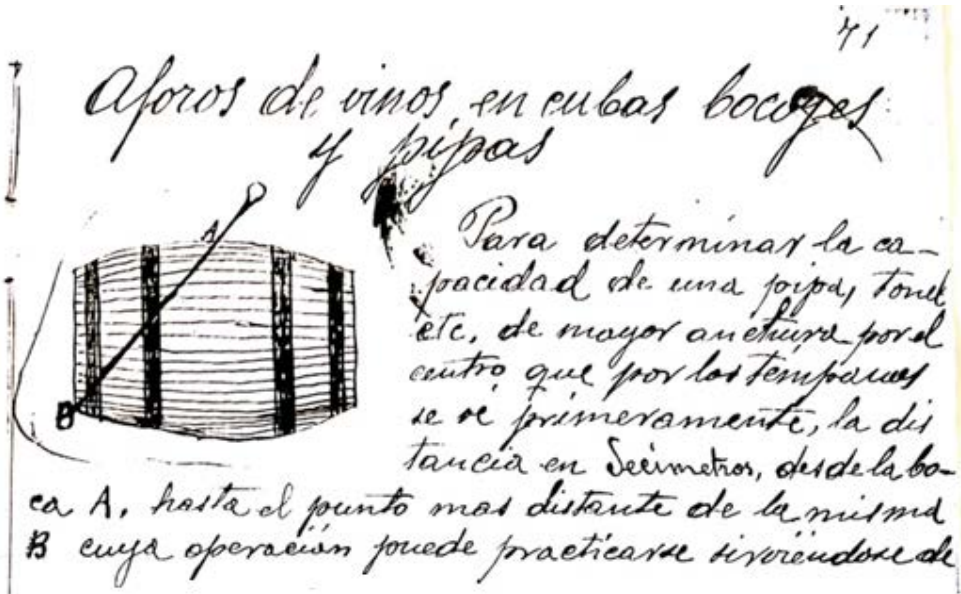 71
Aforos de vinos, en cubas bocoyes
y pipas
A
B
Para determinar la ca-
pacidad de una pipa, tonel
etc, de mayor anchura por el
centro que por los témpanos
se vé primeramente, la dis
tancia en Decimetros, desde la bo-
ca A, hasta el punto mas distante de la misma
B cuya operación puede practicarse sirviéndose de